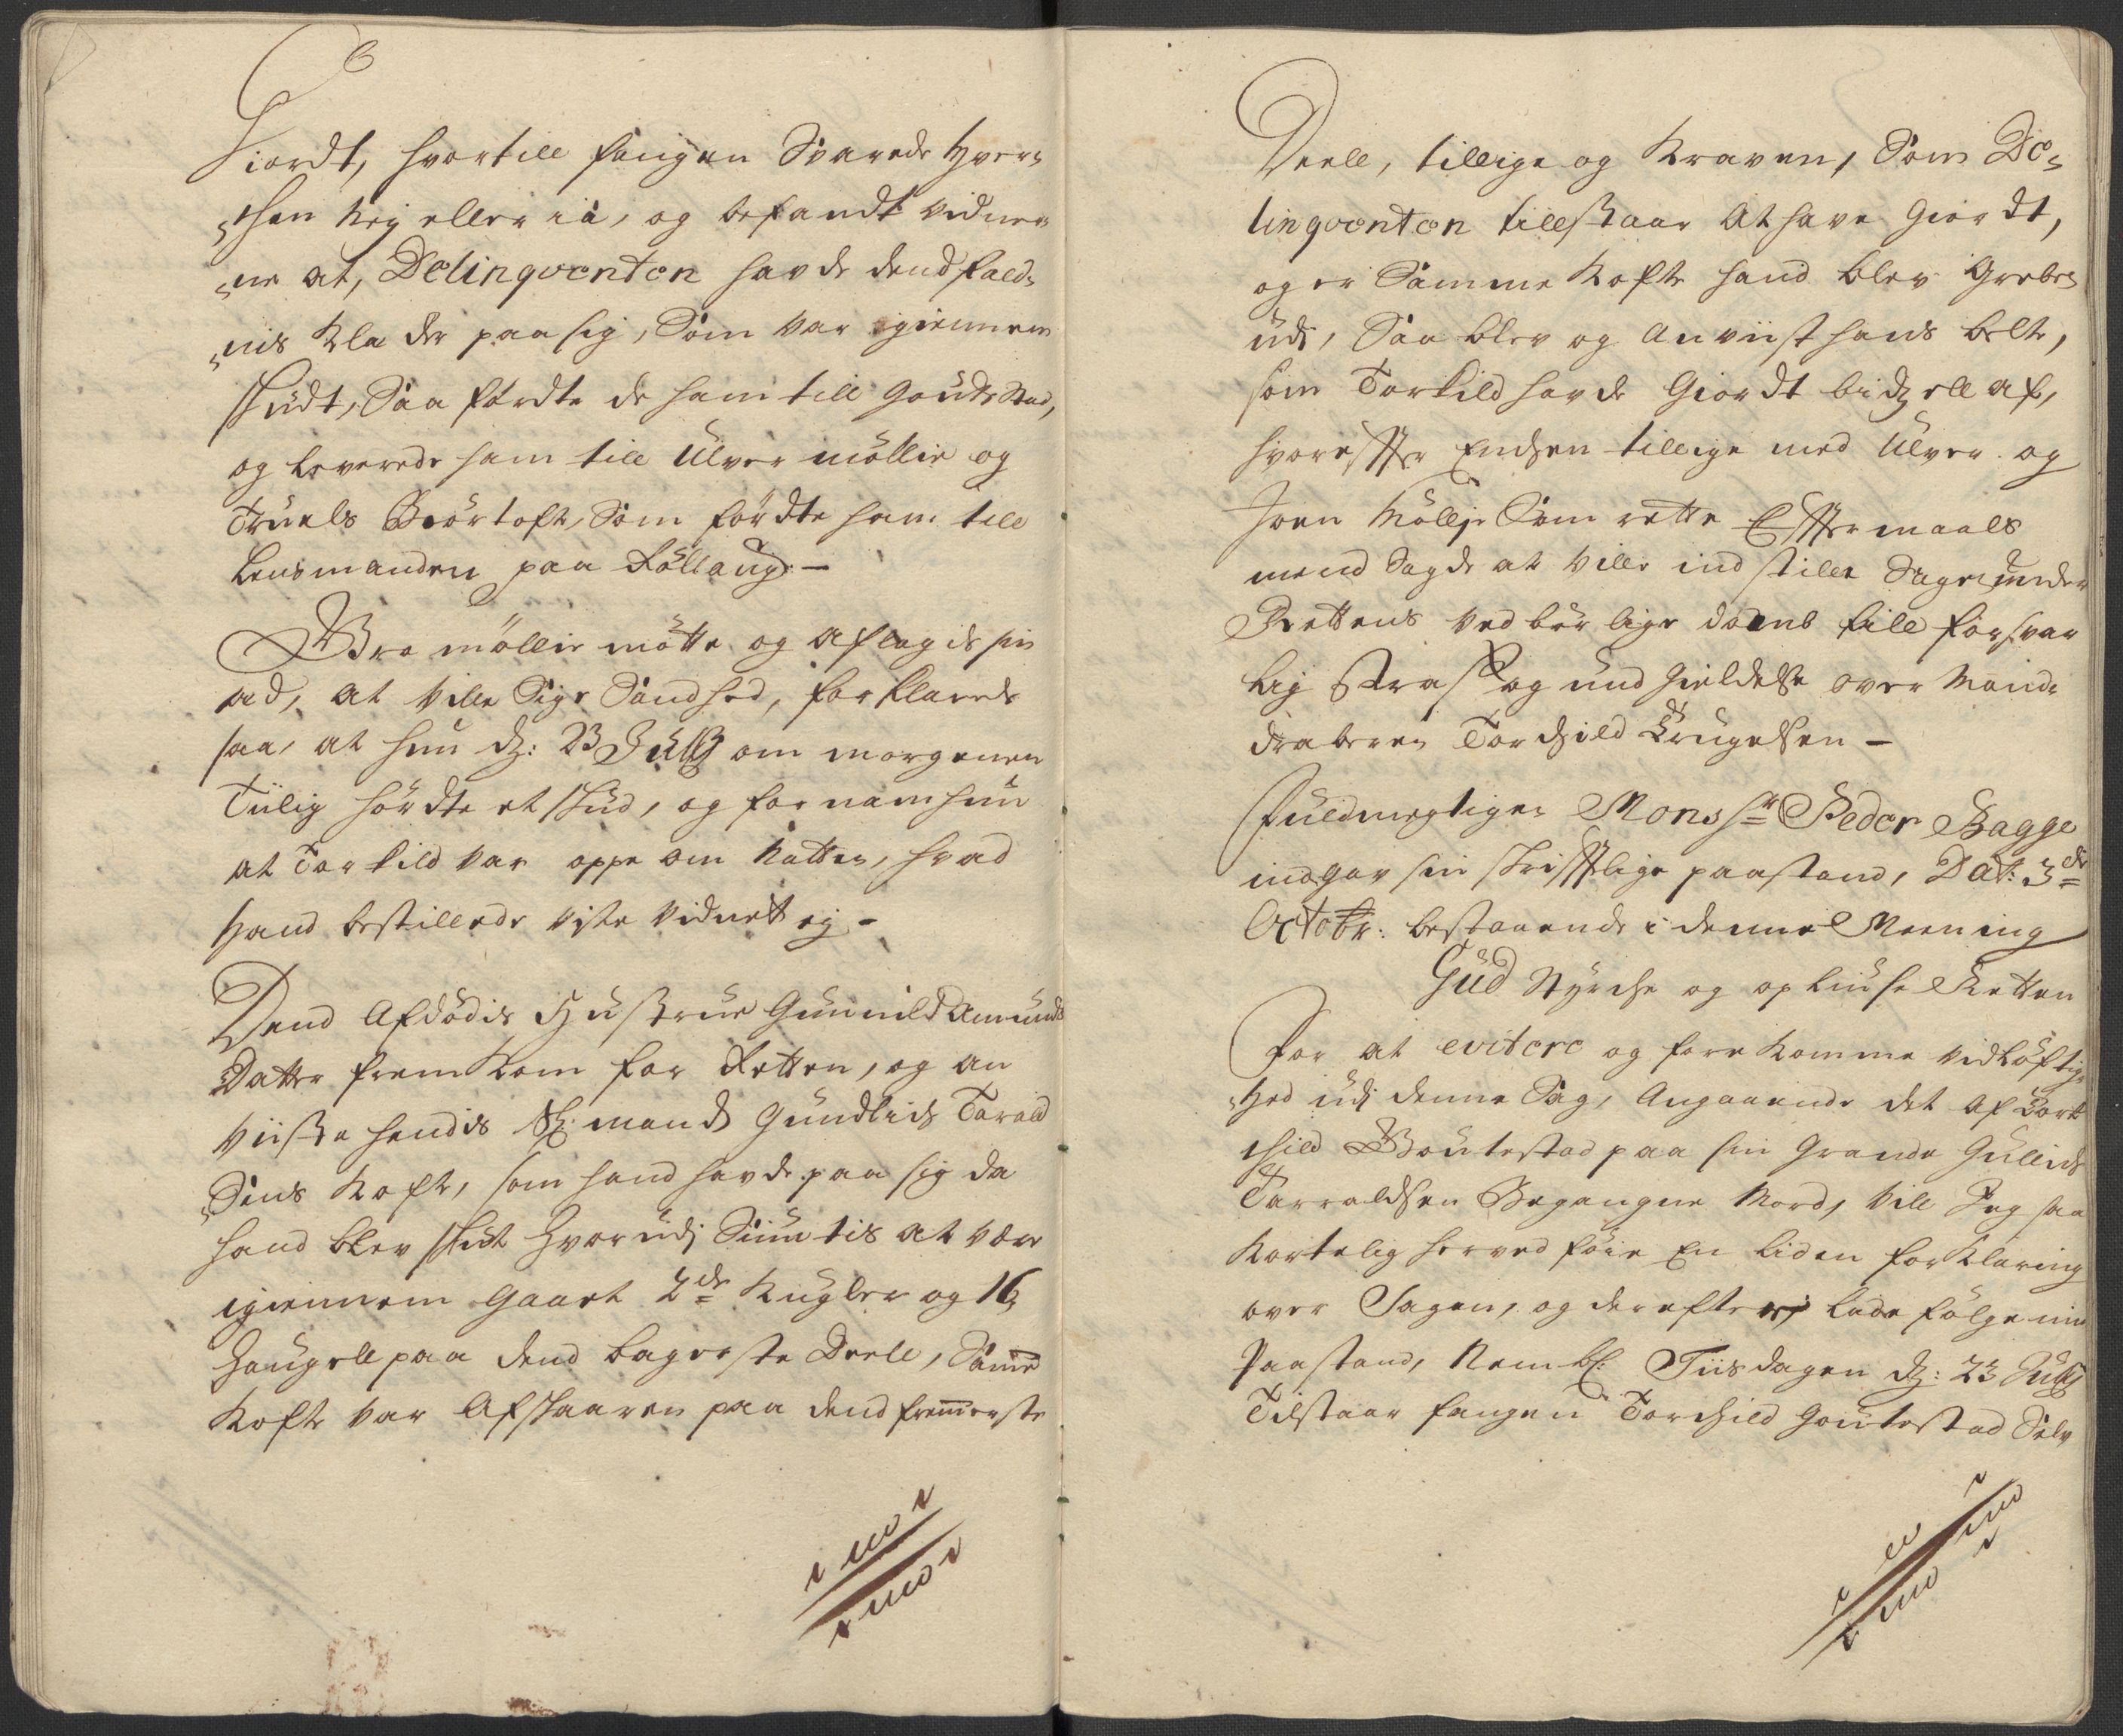 Giordt, hvortill fangen Svarede Hver¬
„chen Neij eller ia, og befandt vidner
„ne at, Delinqventen havde dend fald¬
„nis Klæder paa sig, Som var igiennem
skudt, Saa førdte de ham till Goutestad,
og leverede ham till Ulver møllie og
Truels Biørtoft, Som førdte ham till
Lensmanden paa Føllaug –
Bro møllie møtte og aflagde sin
æd, at ville Sige Sandhed, forklarede
saa, at hun dz: 23 Julij om morgenen
Tiilig hørdte et skud, og fornam hun
at Torkild var oppe om Natten, hvad
Hand bestillede viste vidnet ej –
Dend Afdødis Hustrue Gunnild Amunds
Datter fremkom for Retten, og an
viiste hendis Sl: mands Gundleids Tarald
„Søns Koft, som hand havde paa sig da
hand blev skut hvorudj Siuntis at være
igiennem gaaet 2de Kugler og 16
Haugell paa dend bagerste Deell, Samme
Kofte var Afskaaren paa dend fremerste
Deell, tillige og Kraven, Som De¬
linqventen tillstaar at have giordt,
og er Samme Kofte hand blev greben
udi, Saa blev og anviist hans belte,
som Torkild havde giordt bidzell af,
hvorefter Enchen tillige med Ulver og
Joen Møllje Som rette Eftermaals
mend Sagde at ville indstille Sagen under
Rettens vedbørlige domb till forsvar
lig Straf og undgieldelse over Mand¬
draberen Torchild Trugelsen –
Fuldmegtigen Monsr Peder Bagge
indgav sin skriftlige paastand, Dat: 3de
Octobr: bestaaende i denne Meening
Gud Styrche og opliuse Retten
For at evitere og forekomme vidtløftig¬
„hed udj denne Sag, Angaaende det af Tor
child Goutestad paa sin Grande Gulleich
Tarraldsen Begangne Mord, vill Jeg saa
Kortelig herved føie En liden forklaring
over Sagen, og derefter lade følge min
Paastand, Neml: Tiisdagen dz: 23 Julij
Tilstaar fangen Torchild Goutestad Selv